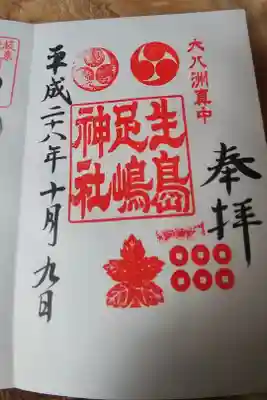 奉拝
大八洲真中
生島
足嶋
神社
平成二十八年十月九日